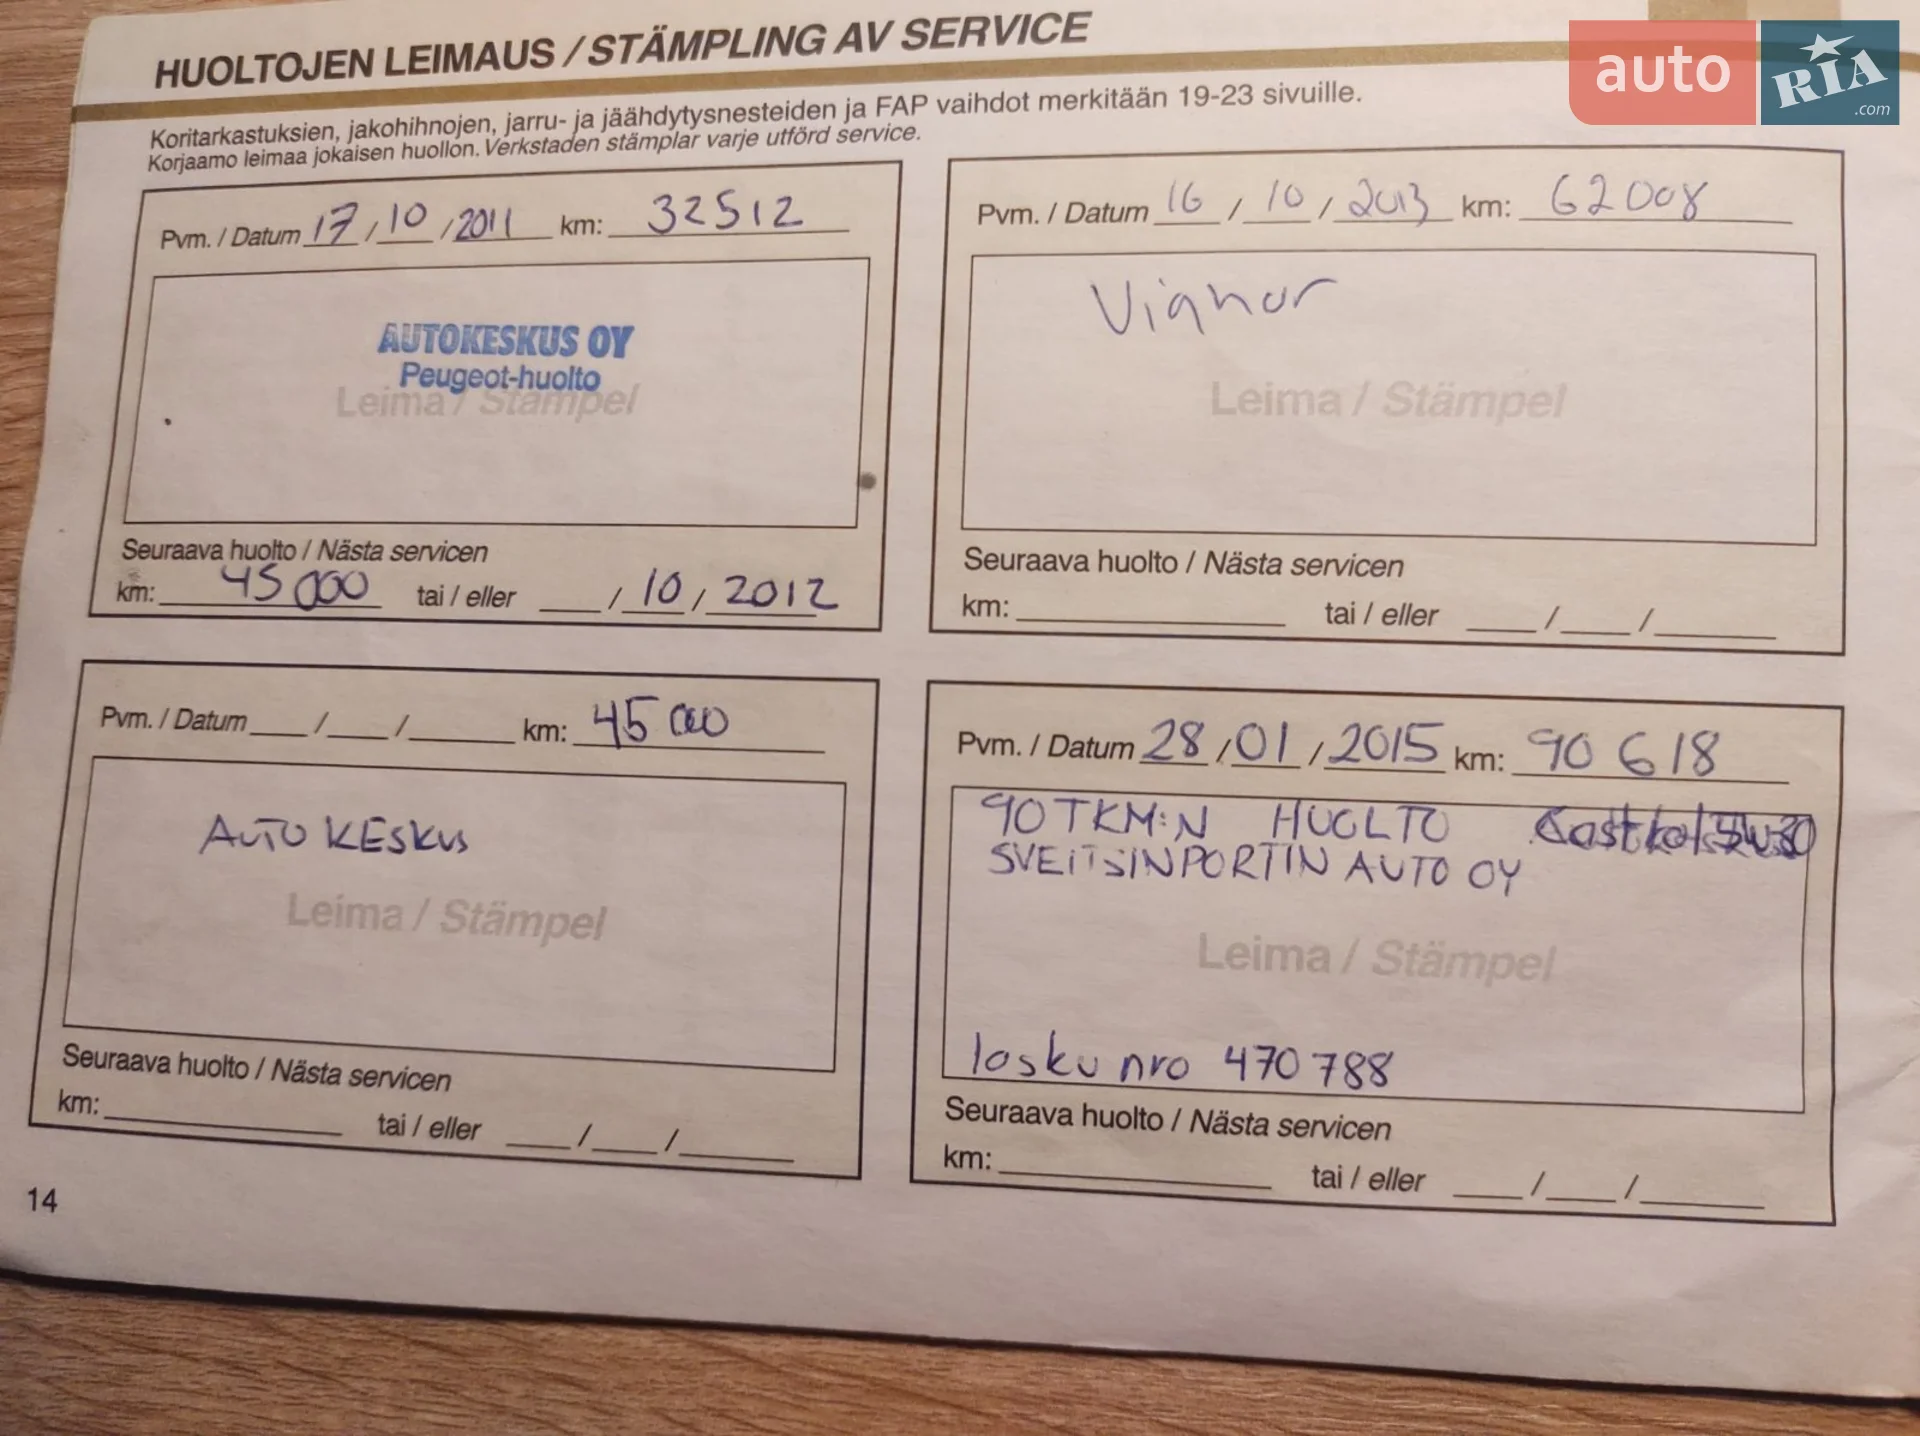 auto RIA .com
HUOLTOJEN LEIMAUS / STÄMPLING AV SERVICE
Koritarkastuksien, jakohihnojen, jarru- ja jäähdytysnesteiden ja FAP vaihdot merkitään 19-23 sivuille.
Korjaamo leimaa jokaisen huollon. Verkstaden stämplar varje utförd service.
Pvm. / Datum 17 / 10 / 2011 km: 32512
AUTOKESKUS OY
Peugeot-huolto
Leima / Stämpel
Seuraava huolto / Nästa servicen
km: 45 000 tai / eller / 10 / 2012
Pvm. / Datum / / km: 45 000
AUTO KESKUS
Leima / Stämpel
Seuraava huolto / Nästa servicen
km: tai / eller / /
14
Pvm. / Datum 16 / 10 / 2013 km: 62 008
Leima / Stämpel
Seuraava huolto / Nästa servicen
km: tai / eller / /
Pvm. / Datum 28 / 01 / 2015 km: 90 618
90 TKM:N HUOLTO
SVEITSINPORTIN AUTO OY
Leima / Stämpel
lasku nro 470 788
Seuraava huolto / Nästa servicen
km: tai / eller / /